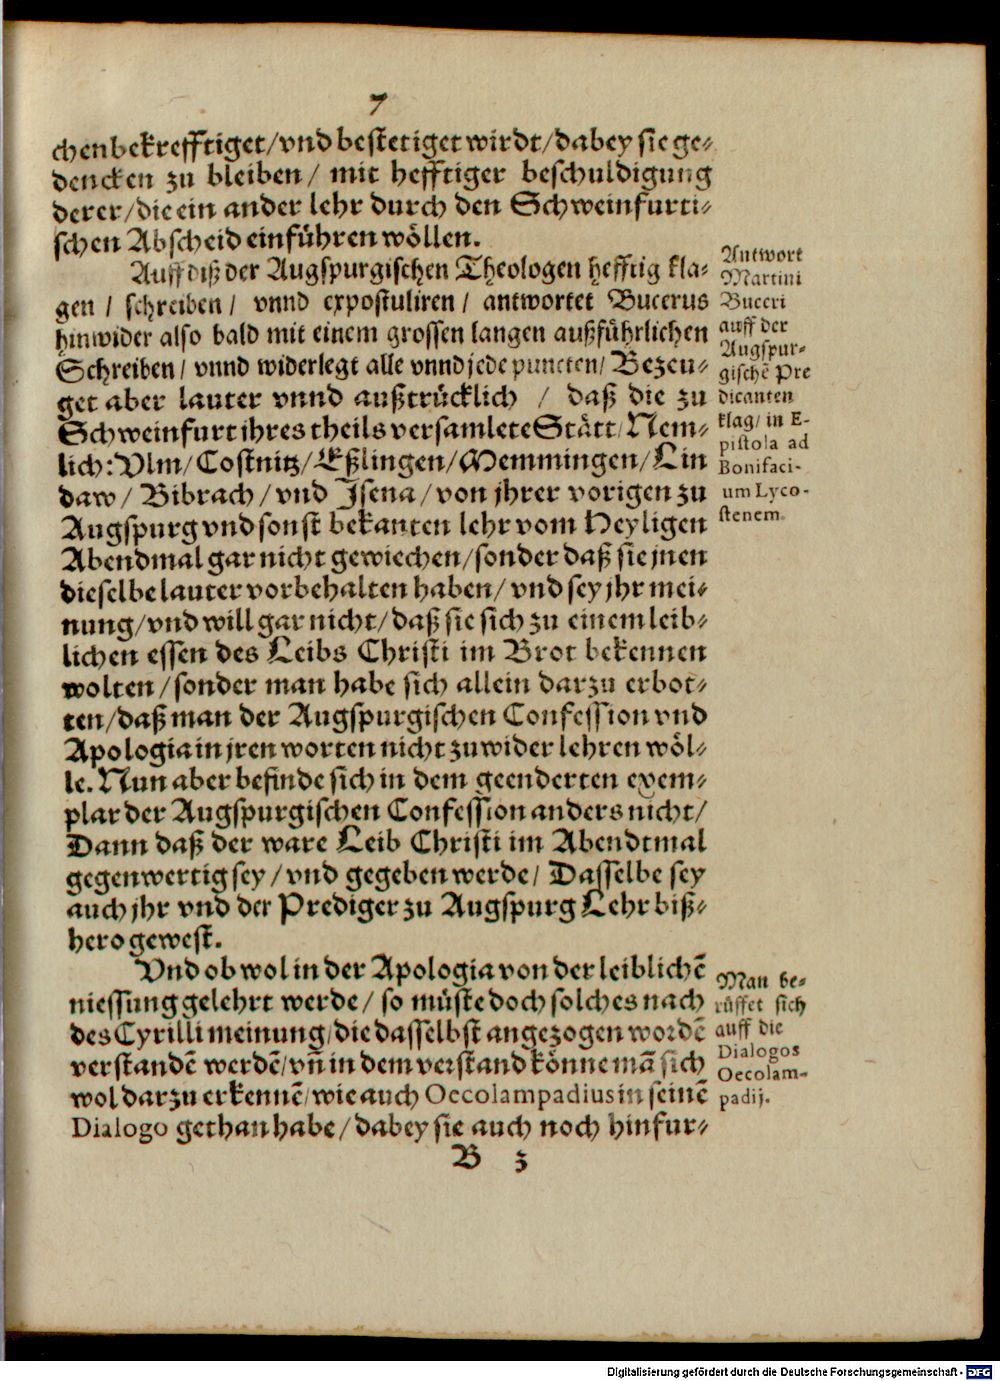 7
chen bekrefftiget/ vnd bestetiget wirdt/ dabey sie ge-
dencken zu bleiben/ mit hefftiger beschuldigung
derer/ die ein ander lehr durch den Schweinfurti-
schen Abscheid einführen wöllen.
Auff diß der Augspurgischen Theologen hefftig kla-
gen / schreiben/ vnnd expostuliren/ antwortet Bucerus
hinwider also bald mit einem grossen langen außführlichen
Schreiben/ vnnd widerlegt alle vnnd jede puncten/ Bezeu-
get aber lauter vnnd außtrücklich / daß die zu
Schweinfurt ihres theils versamlete Stätt/ Nem-
lich: Vlm/ Costnitz/ Eßlingen/ Memmingen/ Lin
daw/ Bibrach/ vnd Jsena/ von jhrer vorigen zu
Augspurg vnd sonst bekanten lehr vom Heyligen
Abendmal gar nicht gewiechen/ sonder daß sie jnen
dieselbe lauter vorbehalten haben/ vnd sey jhr mei-
nung/ vnd will gar nicht/ daß sie sich zu einem leib-
lichen essen des Leibs Christi im Brot bekennen
wolten/ sonder man habe sich allein darzu erbot-
ten/ daß man der Augspurgischen Confession vnd
Apologia in jren worten nicht zuwider lehren wöl-
le. Nun aber befinde sich in dem geenderten exem-
plar der Augspurgischen Confession anders nicht/
Dann daß der ware Leib Christi im Abendtmal
gegenwertig sey/ vnd gegeben werde/ Dasselbe sey
auch jhr vnd der Prediger zu Augspurg Lehr biß-
hero gewest.
Vnd ob wol in der Apologia von der leiblichē
niessung gelehrt werde/ so müste doch solches nach
des Cyrilli meinung/ die daselbst angezogen wordē
verstandē werdē/ vñ in dem verstand könne mā sich
wol darzu erkennē/ wie auch Oecolampadius in seinē
Dialogo gethan habe/ dabey sie auch noch hinfur-
B 3
Antwort
Martini
Buceri
auff der
Augspur-
gischē Pre
dicanten
klag/ in E-
pistola ad
Bonifaci-
um Lyco-
stenem.
Man be-
rüffet sich
auff die
Dialogos
Oecolam-
padij.
Digitalisierung gefördert durch die Deutsche Forschungsgemeinschaft - DFG